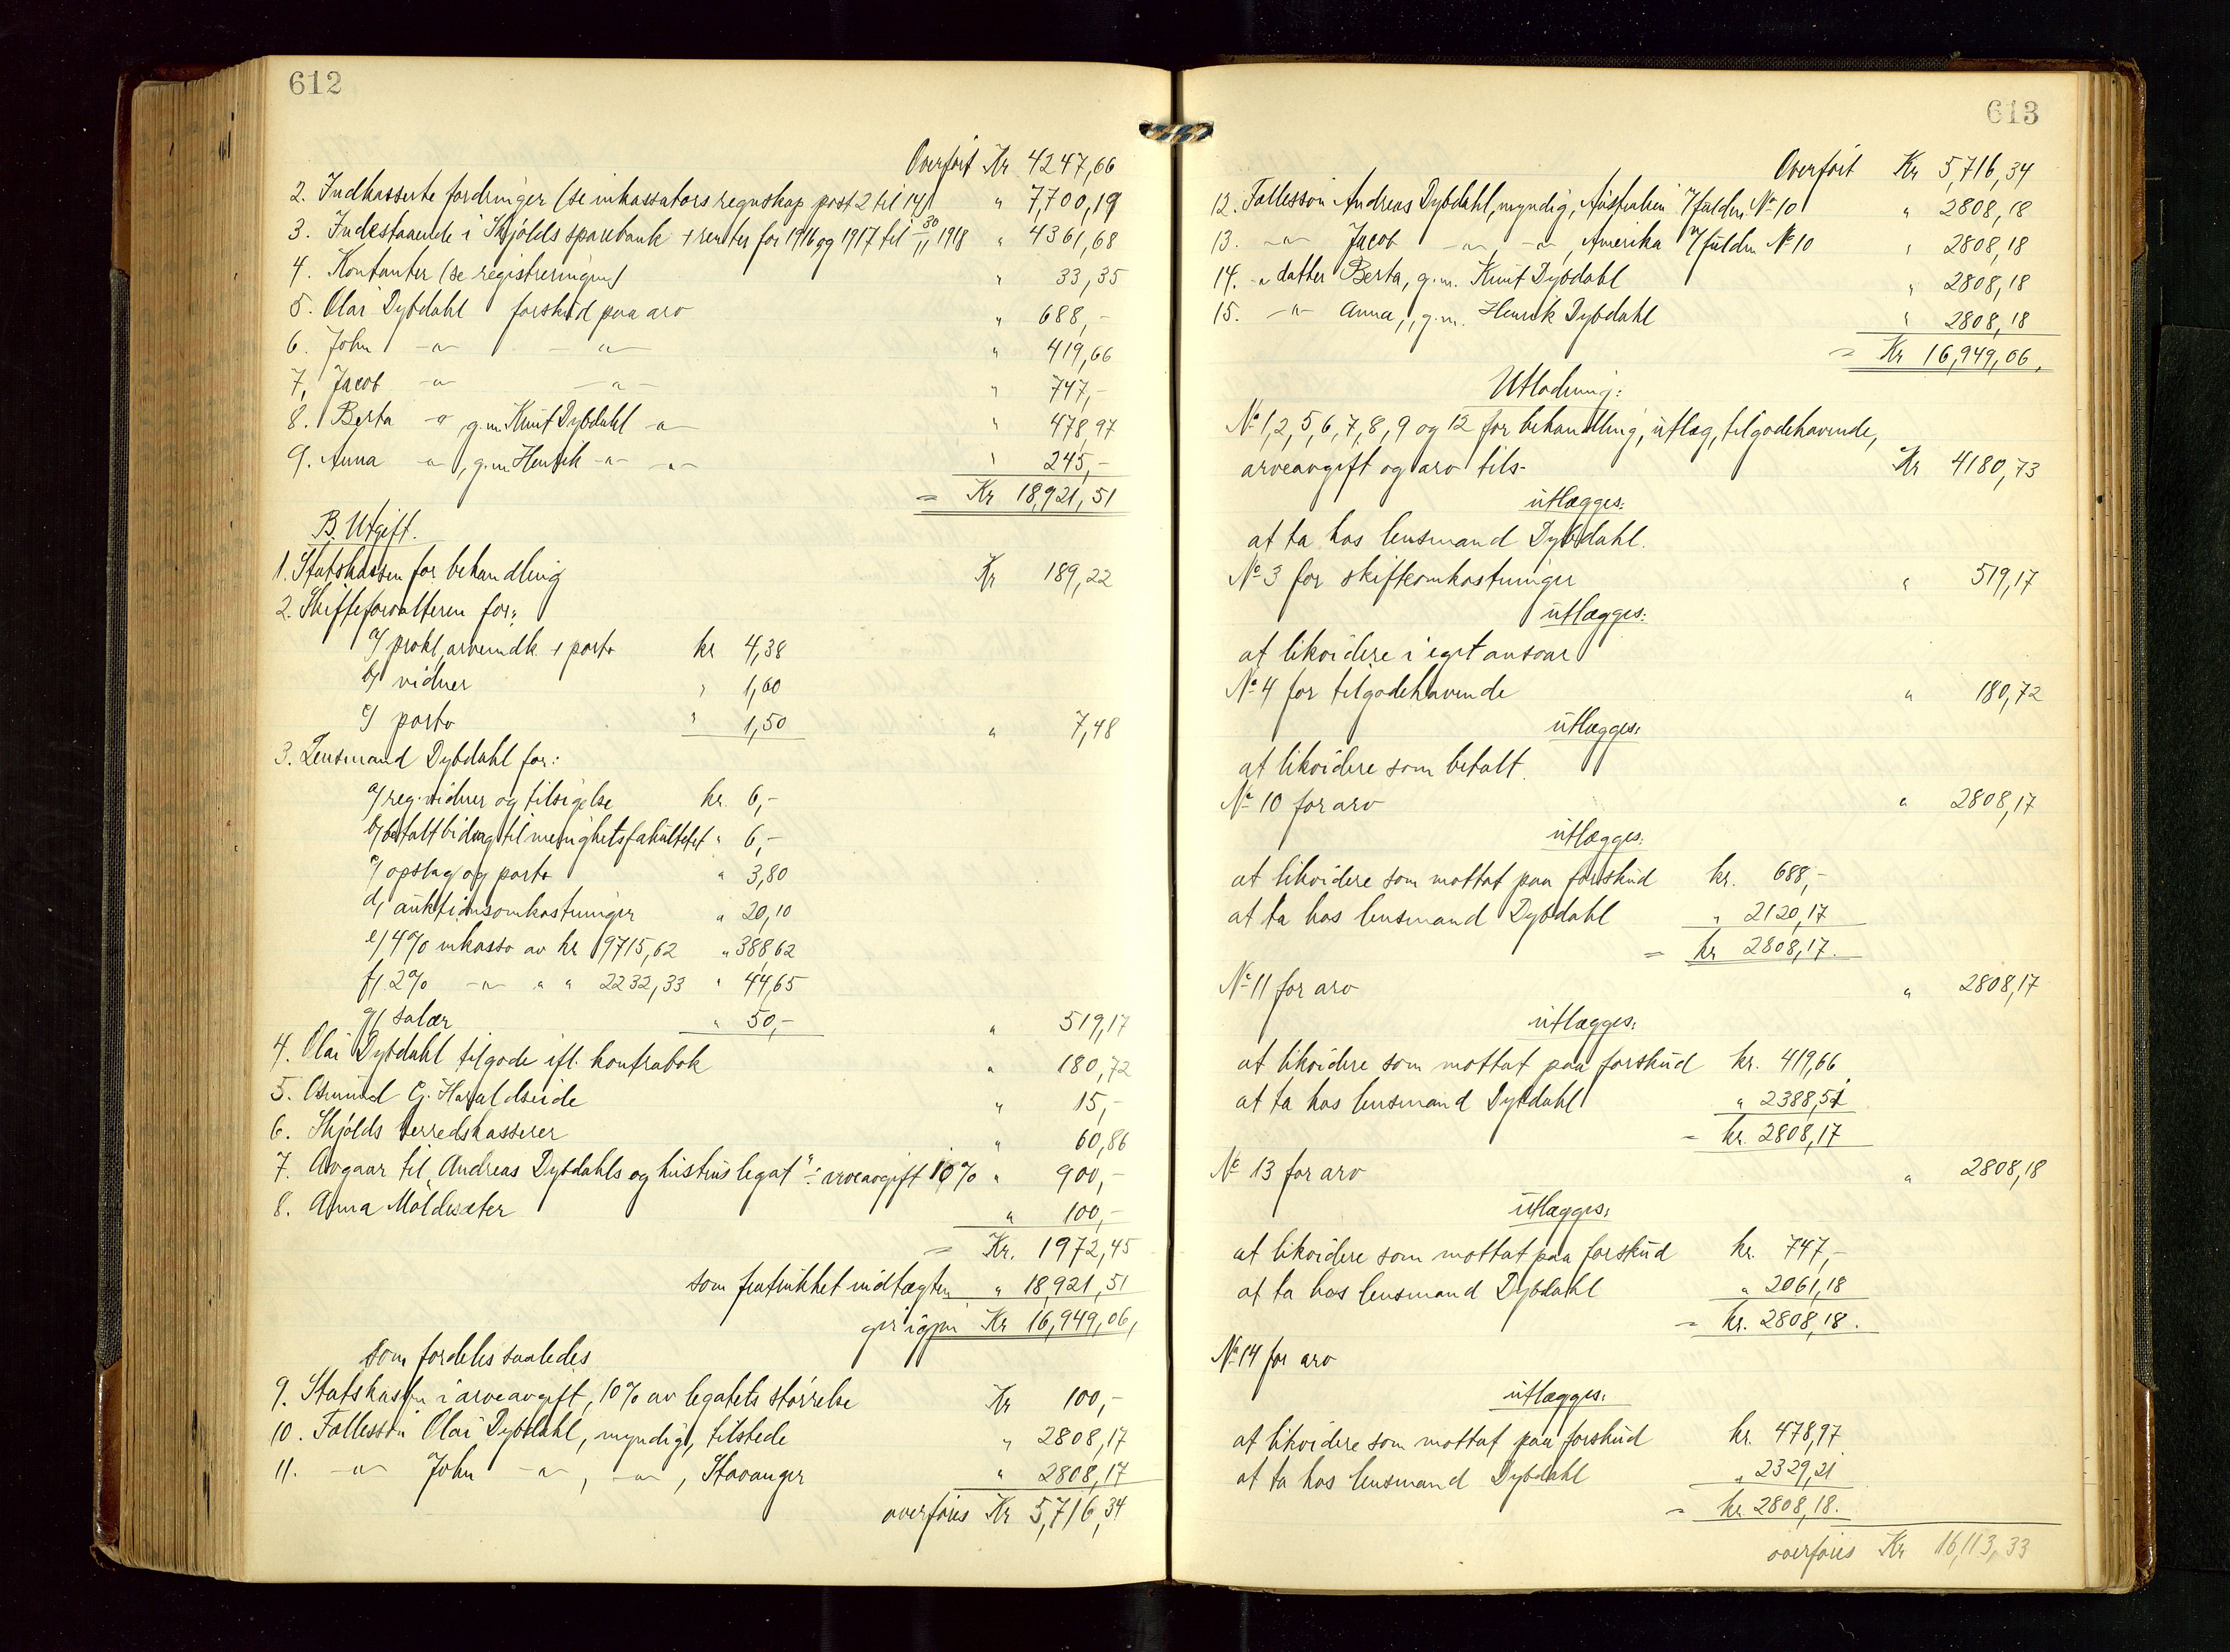 612
Overført Kr 4247,66
2. Indkasserte fordringer (se inkassators regnskap post 2 til 14) " 7,700,19
3. Indestaaende i Skjolds sparebank + renter for 1916 og 1917 til 30/11 1918 " 4361,68
4. Kontanter (se registreringen) " 33,35
5. Olai Dybdahl forskud paa arv " 688,-
6. John -"- -"- " 419,66
7. Jacob -"- -"- " 747,-
8. Berta -"-, g.m. Knut Dybdahl -"- " 478,97
9. Anna -"-, g.m. Henrik -"- -"- " 245,-
= Kr 18,921,51
B. Utgift.
1. Statskassen for behandling Kr 189,22
2. Skifteforvalteren for:
a/ prokl, arveindk. + porto kr 4,38
b/ vidner " 1,60
c/ porto " 1,50 " 7,48
3. Lensmand Dybdahl for:
a/ reg. vidner og tilsigelse kr. 6,-
b/ betalt bidrag til menighetsfakultetet " 6,-
c/ opslag og porto " 3,80
d/ auktionsomkostninger " 20,10
e/ 4% inkasso av kr 9715,62 " 388,62
f/ 2% -"- " " 2232,33 " 44,65
g/ salær " 50,- " 519,17
4. Olai Dybdahl tilgode ifl. kontrabok " 180,72
5. Osmund G. Haraldseide " 15,-
6. Skjolds herredskasserer " 60,86
7. Avgaar til "Andreas Dybdahls og hustrus legat" ÷ arveavgift 10% " 900,-
8. Anna Moldesæter " 100,-
= Kr. 1972,45
som fratrukket indtægten " 18,921,51
gir igjen Kr 16,949,06,
som fordeles saaledes
9. Statskassen i arveavgift, 10% av legatets størrelse Kr 100,-
10. Fællessøn Olai Dybdahl, myndig, tilstede " 2808,17
11. -"- John -"-, -"-, Stavanger " 2808,17
overføres Kr 5,716,34
613
Overført Kr 5,716,34
12. Fællessøn Andreas Dybdahl, myndig, Australien v/ fuldm. No 10 " 2808,18
13. -"- Jacob -"-, -"-, Amerika v/ fuldm No 10 " 2808,18
14. " datter Berta, g.m. Knut Dybdahl " 2808,18
15. -"- Anna, g.m. Henrik Dybdahl " 2808,18
= Kr 16,949,06,
Utlodning:
No 1, 2, 5, 6, 7, 8, 9 og 12 for behandling, utlæg, tilgodehavende,
arveavgift og arv tils- Kr 4180,73
utlægges:
at ta hos lensmand Dybdahl.
No 3 for skifteomkostninger " 519,17
utlægges:
at likvidere i eget ansvar
No 4 for tilgodehavende " 180,72
utlægges:
at likvidere som betalt.
No 10 for arv " 2808,17
utlægges:
at likvidere som mottat paa forskud kr. 688,-
at ta hos lensmand Dybdahl " 2120,17
= kr 2808,17.
No 11 for arv " 2808,17
utlægges:
at likvidere som mottat paa forskud kr. 419,66
at ta hos lensmand Dybdahl " 2388,51
= kr. 2808,17
No 13 for arv " 2808,18
utlægges:
at likvidere som mottat paa forskud kr. 747,-
at ta hos lensmand Dybdahl " 2061,18
= kr. 2808,18.
No 14 for arv
utlægges:
at likvidere som mottat paa forskud kr. 478,97
at ta hos lensmand Dybdahl " 2329,21
= kr. 2808,18.
overføres Kr 16,113,33